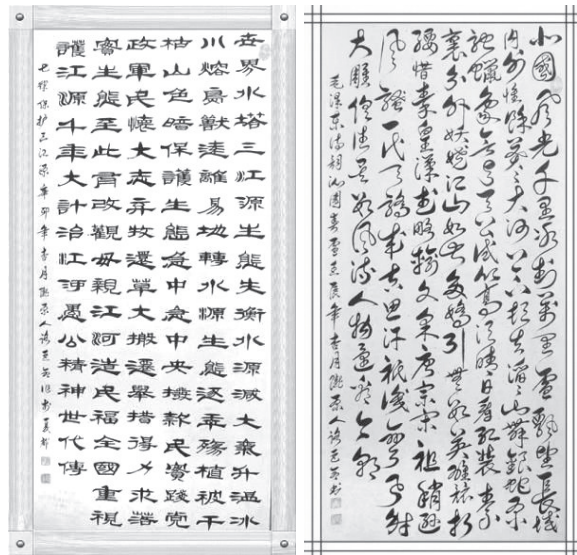 世界水塔三江源生態失衡水源減大氣升温冰
川熔鳥獸遠離易地轉水源生態逐乖殤植被干
枯山色暗保護生態急中急中央撥款民資踐党
政軍民懷大志弃牧還草大搬遷舉措得力求落
實生態至此有改觀母親江河造民福全國重視
護江源千年大計治江河愚公精神世代傳
七律保护三江源辛卯年
北國風光千里冰封萬里雪飄望長城
内外惟餘莽莽大河上下頓失滔滔山舞銀蛇原
馳蠟象欲與天公試比高須晴日看紅裝素
裹分外妖嬈江山如此多嬌引無數英雄競折
腰惜秦皇漢武略輸文采唐宗宋祖稍遜
風騷一代天驕成吉思汗祇識彎弓射
大雕俱往矣數風流人物還看今朝
毛澤東詩詞沁園春雪